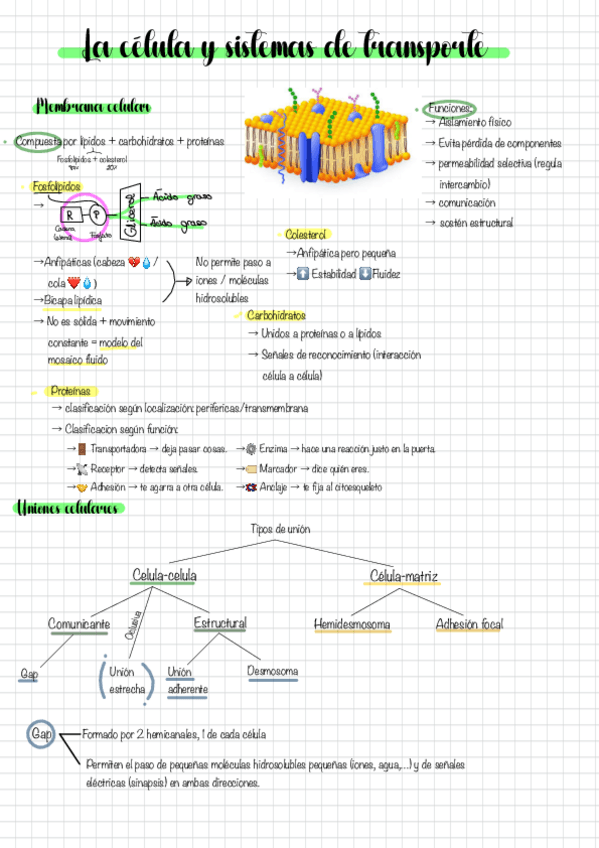 La célula y sistemas de transporte
Membrana celular
Compuesta por lípidos + carbohidratos + proteínas
Fosfolípidos + colesterol
20%
Funciones:
→ Aislamiento físico
→ Evita pérdida de componentes
→ permeabilidad selectiva (regula
intercambio)
→ comunicación
→ sostén estructural
Fosfolípidos
→ R P Glicerol
Ácido graso
Ácido graso
Cadena
lateral
Fosfato
→Anfipáticas (cabeza 💔💧/
cola ❤️💧)
→Bicapa lipídica
→ No es sólida + movimiento
constante = modelo del
mosaico fluido
No permite paso a
iones / moléculas
hidrosolubles
Colesterol
→Anfipática pero pequeña
→⬆️ Estabilidad ⬇️Fluidez
Carbohidratos
→ Unidos a proteínas o a lípidos
→ Señales de reconocimiento (interacción
célula a célula)
Proteínas
→ clasificación según localización: perifericas/transmembrana
→ Clasificacion según función:
→🚪 Transportadora → deja pasar cosas.
→⚙️ Enzima → hace una reacción justo en la puerta.
→📡 Receptor → detecta señales.
→🏷️ Marcador → dice quién eres.
→🤝 Adhesión → te agarra a otra célula.
→🪢 Anclaje → te fija al citoesqueleto
Uniones celulares
Tipos de unión
Celula-celula
Célula-matriz
Comunicante
Oclusiva
Estructural
Hemidesmosoma
Adhesión focal
Gap
Unión
estrecha
Unión
adherente
Desmosoma
Gap
Formado por 2 hemicanales, 1 de cada célula
Permiten el paso de pequeñas moléculas hidrosolubles pequeñas (iones, agua,...) y de señales
eléctricas (sinapsis) en ambas direcciones.